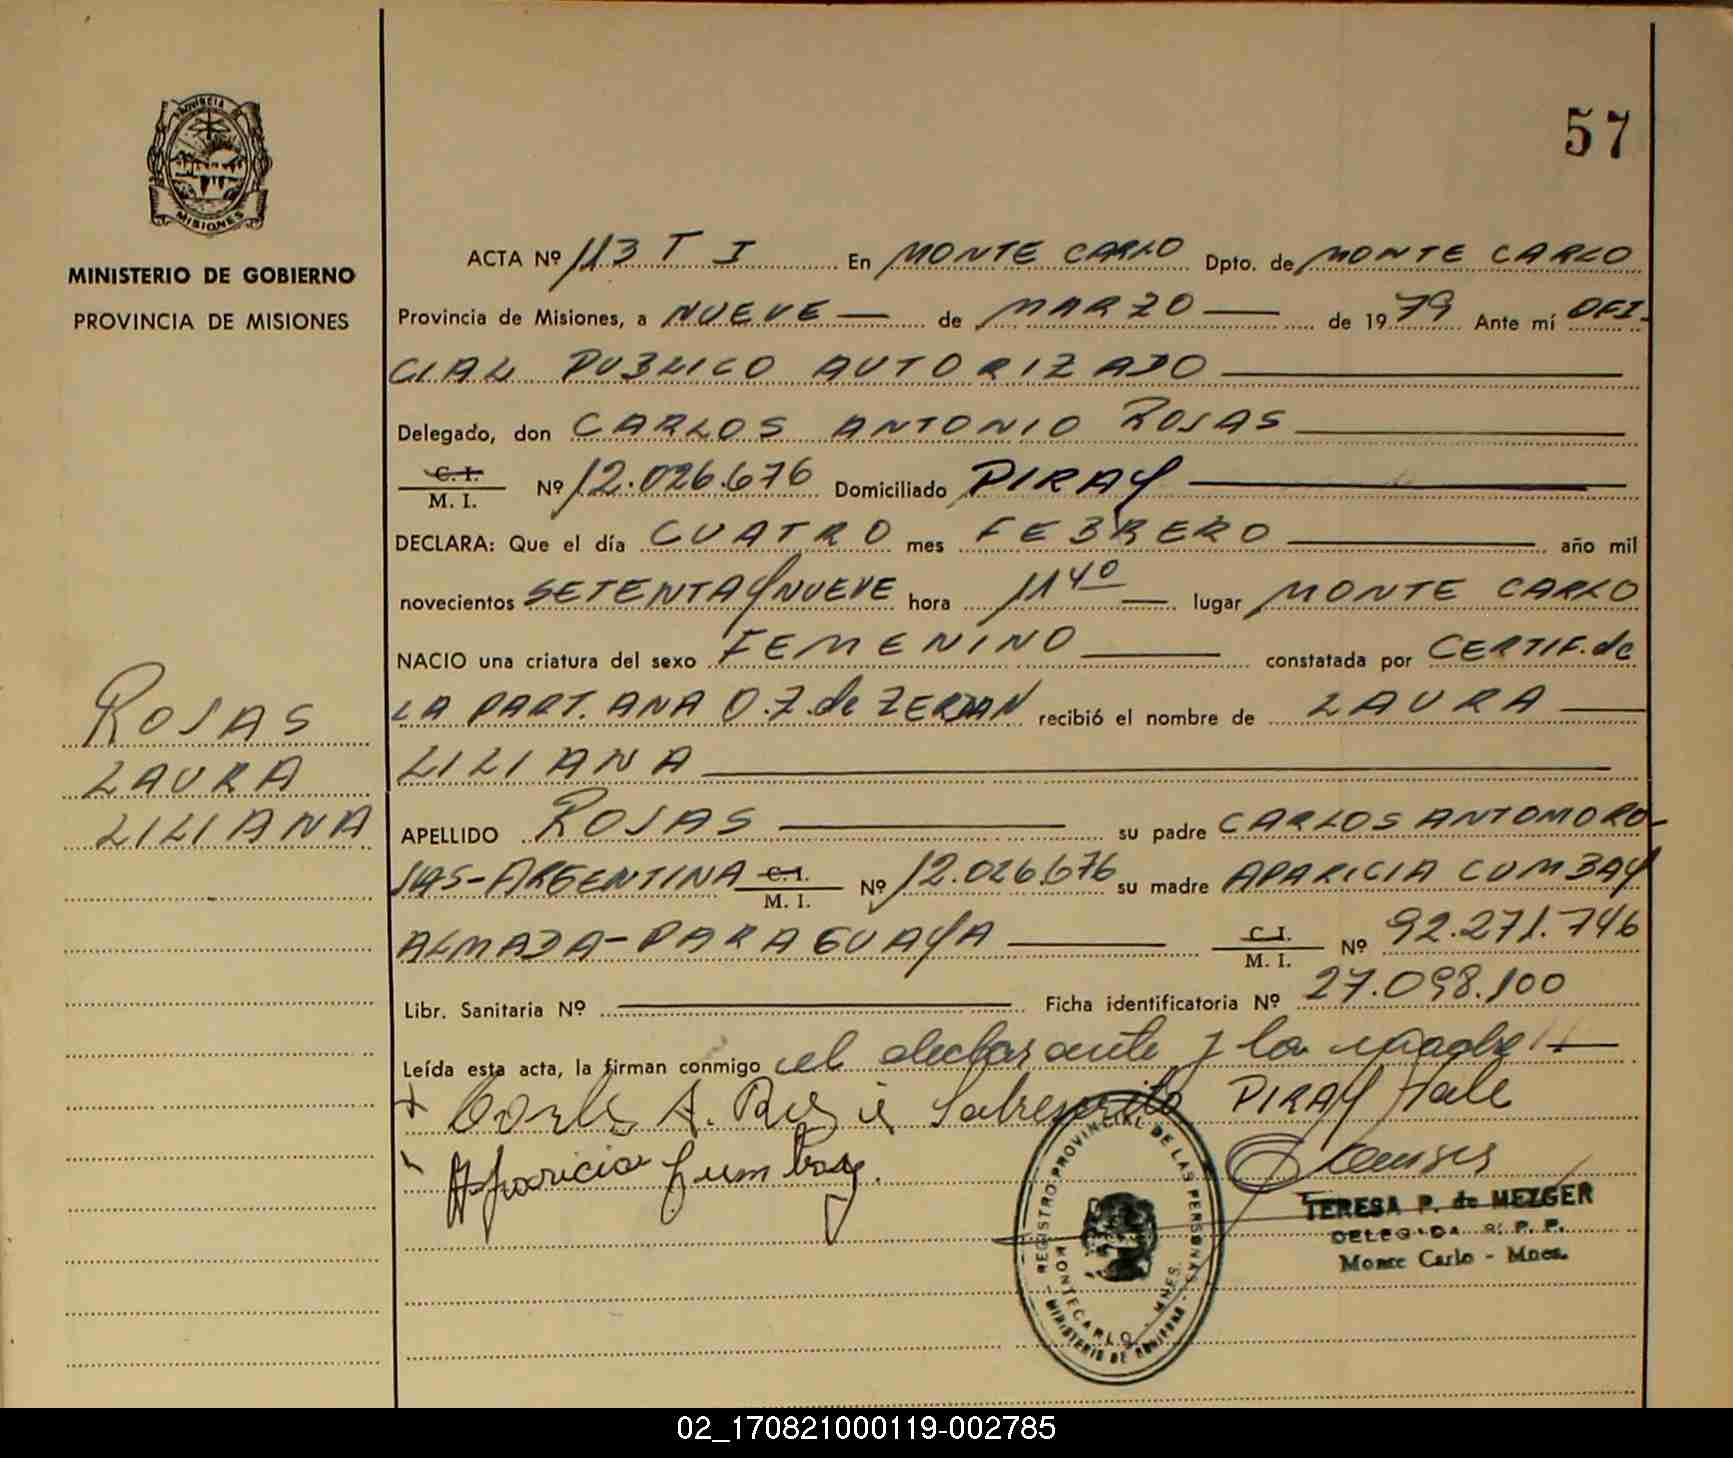 PROVINCIA DE
MISIONES
MINISTERIO DE GOBIERNO
PROVINCIA DE MISIONES
ROJAS
LAURA
LILIANA
57
ACTA Nº 113 T I En MONTE CARLO Dpto. de MONTE CARLO
Provincia de Misiones, a NUEVE — de MARZO — de 1979 Ante mí OFI-
CIAL PUBLICO AUTORIZADO
Delegado, don CARLOS ANTONIO ROJAS
C. I.
M. I. Nº 12.026.676 Domiciliado PIRAY
DECLARA: Que el día CUATRO mes FEBRERO — año mil
novecientos SETENTA Y NUEVE hora 11 40 — lugar MONTE CARLO
NACIO una criatura del sexo FEMENINO — constatada por CERTIF. de
LA PART. ANA O. Z. de ZERJAN recibió el nombre de LAURA —
LILIANA
APELLIDO ROJAS — su padre CARLOS ANTONIO RO-
JAS-ARGENTINA C. I. M. I. Nº 12.026.676 su madre APARICIA CUMBAY
ALMADA-PARAGUAYA — C. I. M. I. Nº 92.271.746
Libr. Sanitaria Nº — Ficha identificatoria Nº 27.098.100
Leída esta acta, la firman conmigo el declarante y la madre //—
Sobreescrito PIRAY Vale
Aparicia Cumbay.
REGISTRO PROVINCIAL DE LAS PERSONAS
MONTECARLO - MNES.
MINISTERIO DE GOBIERNO
TERESA P. de MEZGER
DELEGADA R. P. P.
Monte Carlo - Mnes.
02_170821000119-002785